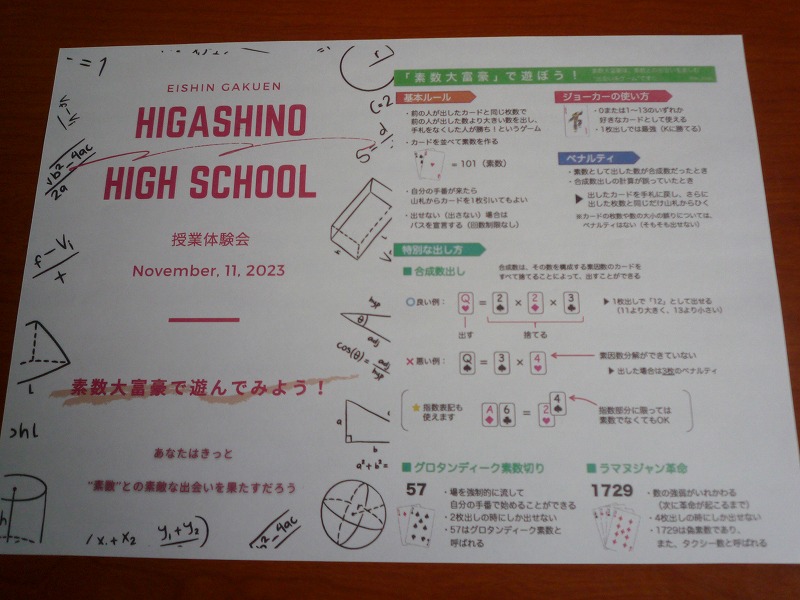 EISHIN GAKUEN
HIGASHINO
HIGH SCHOOL
授業体験会
November, 11, 2023
素数大富豪で遊んでみよう！
あなたはきっと
"素数"との素敵な出会いを果たすだろう
「素数大富豪」で遊ぼう！
基本ルール
・前の人が出したカードと同じ枚数で
前の人が出した数より大きい数を出し、
手札をなくした人が勝ち！というゲーム
・カードを並べて素数を作る
= 101（素数）
・自分の手番が来たら
山札からカードを1枚引いてもよい
・出せない（出さない）場合は
パスを宣言する（回数制限なし）
ジョーカーの使い方
・0または1〜13のいずれか
好きなカードとして使える
・1枚出しでは最強（Kに勝てる）
ペナルティ
・素数として出した数が合成数だったとき
・合成数出しの計算が誤っていたとき
▶ 出したカードを手札に戻し、さらに
出した枚数と同じだけ山札からひく
※カードの枚数や数の大小の誤りについては、
ペナルティはない（そもそも出せない）
特別な出し方
■ 合成数出し
合成数は、その数を構成する素因数のカードを
すべて捨てることによって、出すことができる
良い例： Q = 2 × 2 × 3
出す 捨てる
▶ 1枚出しで「12」として出せる
（11より大きく、13より小さい）
× 悪い例： Q = 3 × 4
素因数分解ができていない
▶ 出した場合は3枚のペナルティ
★ 指数表記も
使えます
A 6 = 2 4
指数部分に限っては
素数でなくてもOK
■ グロタンディーク素数切り
57
・場を強制的に流して
自分の手番で始めることができる
・2枚出しの時にしか出せない
・57はグロタンディーク素数と
呼ばれる
■ ラマヌジャン革命
1729
・数の強弱がいれかわる
（次に革命が起こるまで）
・4枚出しの時にしか出せない
・1729は偽素数であり、
また、タクシー数と呼ばれる
= 1
vb²-4ac
2a
cos(θ)= adj
hyp
θ
adj
a
b
a²+b²=
x₁+x₂
y₁+y₂
h
r